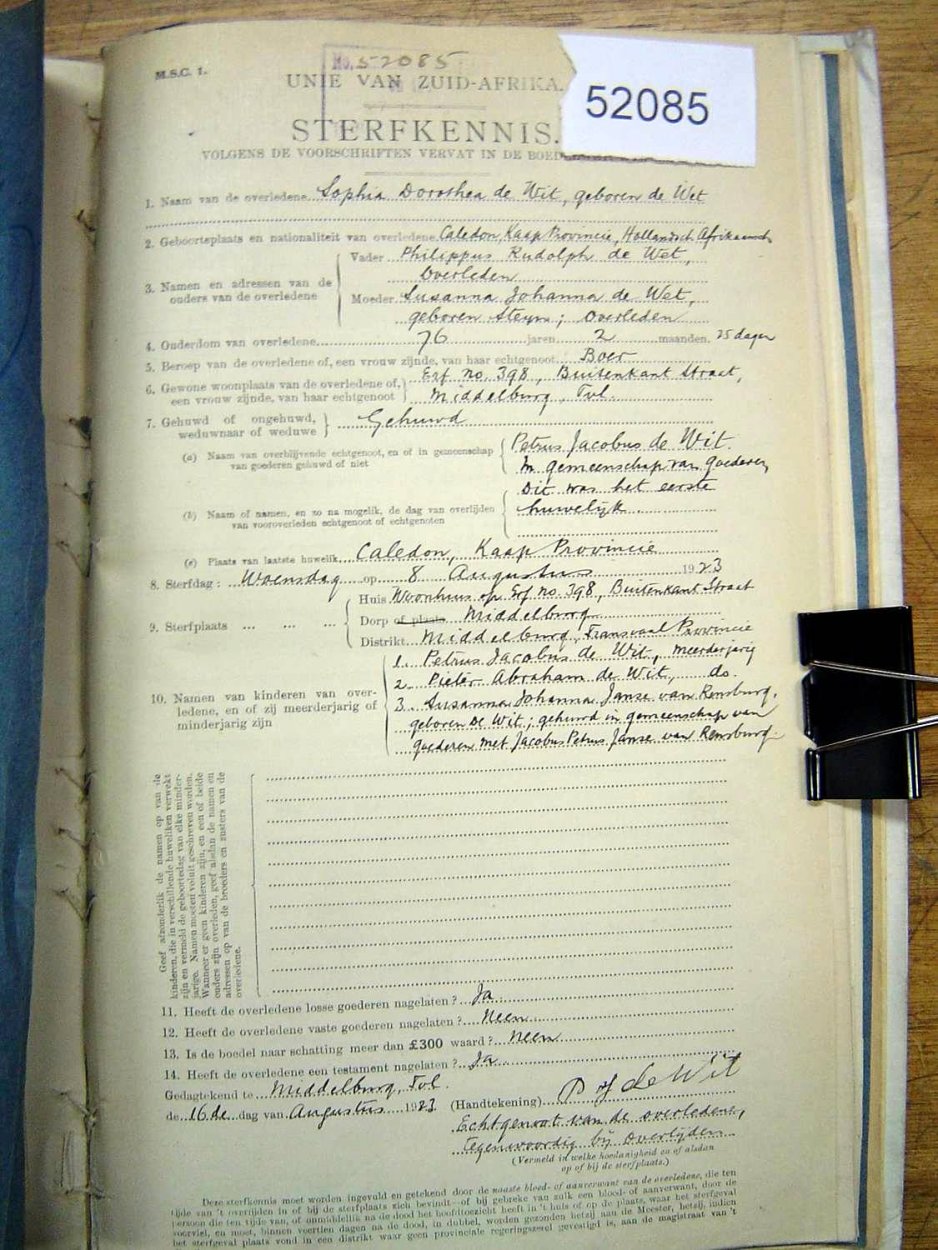 M.S.C. 1.
No. 52085
52085
UNIE VAN ZUID-AFRIKA.
STERFKENNIS.
VOLGENS DE VOORSCHRIFTEN VERVAT IN DE
1. Naam van de overledene Sophia Dorothea de Wit, geboren de Wet
2. Geboorteplaats en nationaliteit van overledene Caledon, Kaap Provincie, Hollandsch Afrikaansch
3. Namen en adressen van de ouders van de overledene
Vader Philippus Rudolph de Wet,
Overleden
Moeder Susanna Johanna de Wet,
geboren Steyn; overleden
4. Ouderdom van overledene 76 jaren 2 maanden. 25 dagen
5. Beroep van de overledene of, een vrouw zijnde, van haar echtgenoot Boer
6. Gewone woonplaats van de overledene of, een vrouw zijnde, van haar echtgenoot
Erf no. 398, Buitenkant Straat,
Middelburg, Tvl.
7. Gehuwd of ongehuwd, weduwnaar of weduwe
Gehuwd
(a) Naam van overblijvende echtgenoot, en of in gemeenschap van goederen gehuwd of niet
Petrus Jacobus de Wit.
In gemeenschap van goederen
Dit was het eerste
(b) Naam of namen, en zo na mogelik, de dag van overlijden van vooroverleden echtgenoot of echtgenoten
huwelijk.
(c) Plaats van laatste huwelik Caledon, Kaap Provincie
8. Sterfdag: Woensdag op 8 Augustus 1923
9. Sterfplaats ... ... ...
Huis Woonhuis op Erf no. 398, Buitenkant Straat
Dorp of plaats Middelburg
Distrikt Middelburg, Transvaal Provincie
10. Namen van kinderen van overledene, en of zij meerderjarig of minderjarig zijn
1. Petrus Jacobus de Wit, meerderjarig
2. Pieter Abraham de Wit, do.
3. Susanna Johanna Janse van Rensburg,
geboren De Wit; gehuwd in gemeenschap van
goederen met Jacobus Petrus Janse van Rensburg.
Geef afzonderlik de namen op van de
kinderen, die in verschillende huweliken verwekt
zijn en vermeld de geboortedag van elke minderjarige.
Namen moeten voluit geschreven worden.
Wanneer er geen kinderen zijn, en een of beide
ouders zijn overleden, geef alsdan de namen en
adressen op van de broeders en zusters van de
overledene.
11. Heeft de overledene losse goederen nagelaten? Ja
12. Heeft de overledene vaste goederen nagelaten? Neen
13. Is de boedel naar schatting meer dan £300 waard? Neen
14. Heeft de overledene een testament nagelaten? Ja
Gedagtekend te Middelburg, Tvl.
de 16de dag van Augustus 1923
(Handtekening) de Wit
Echtgenoot van de overledene,
tegenwoordig bij overlijden
(Vermeld in welke hoedanigheid en of alsdan
op of bij de sterfplaats.)
Deze sterfkennis moet worden ingevuld en getekend door de naaste bloed- of aanverwant van de overledene, die ten
tijde van 't overlijden in of bij de sterfplaats zich bevindt—of bij gebreke van zulk een bloed- of aanverwant, door de
persoon die ten tijde van, of onmiddellik na de dood het hoofdtoezicht heeft in 't huis of op de plaats, waar het sterfgeval
voorviel, en moet, binnen veertien dagen na de dood, in dubbel, worden gezonden hetzij aan de Meester, hetzij, indien
het sterfgeval plaats vond in een distrikt waar geen provinciale regeringszetel gevestigd is, aan de magistraat van 't